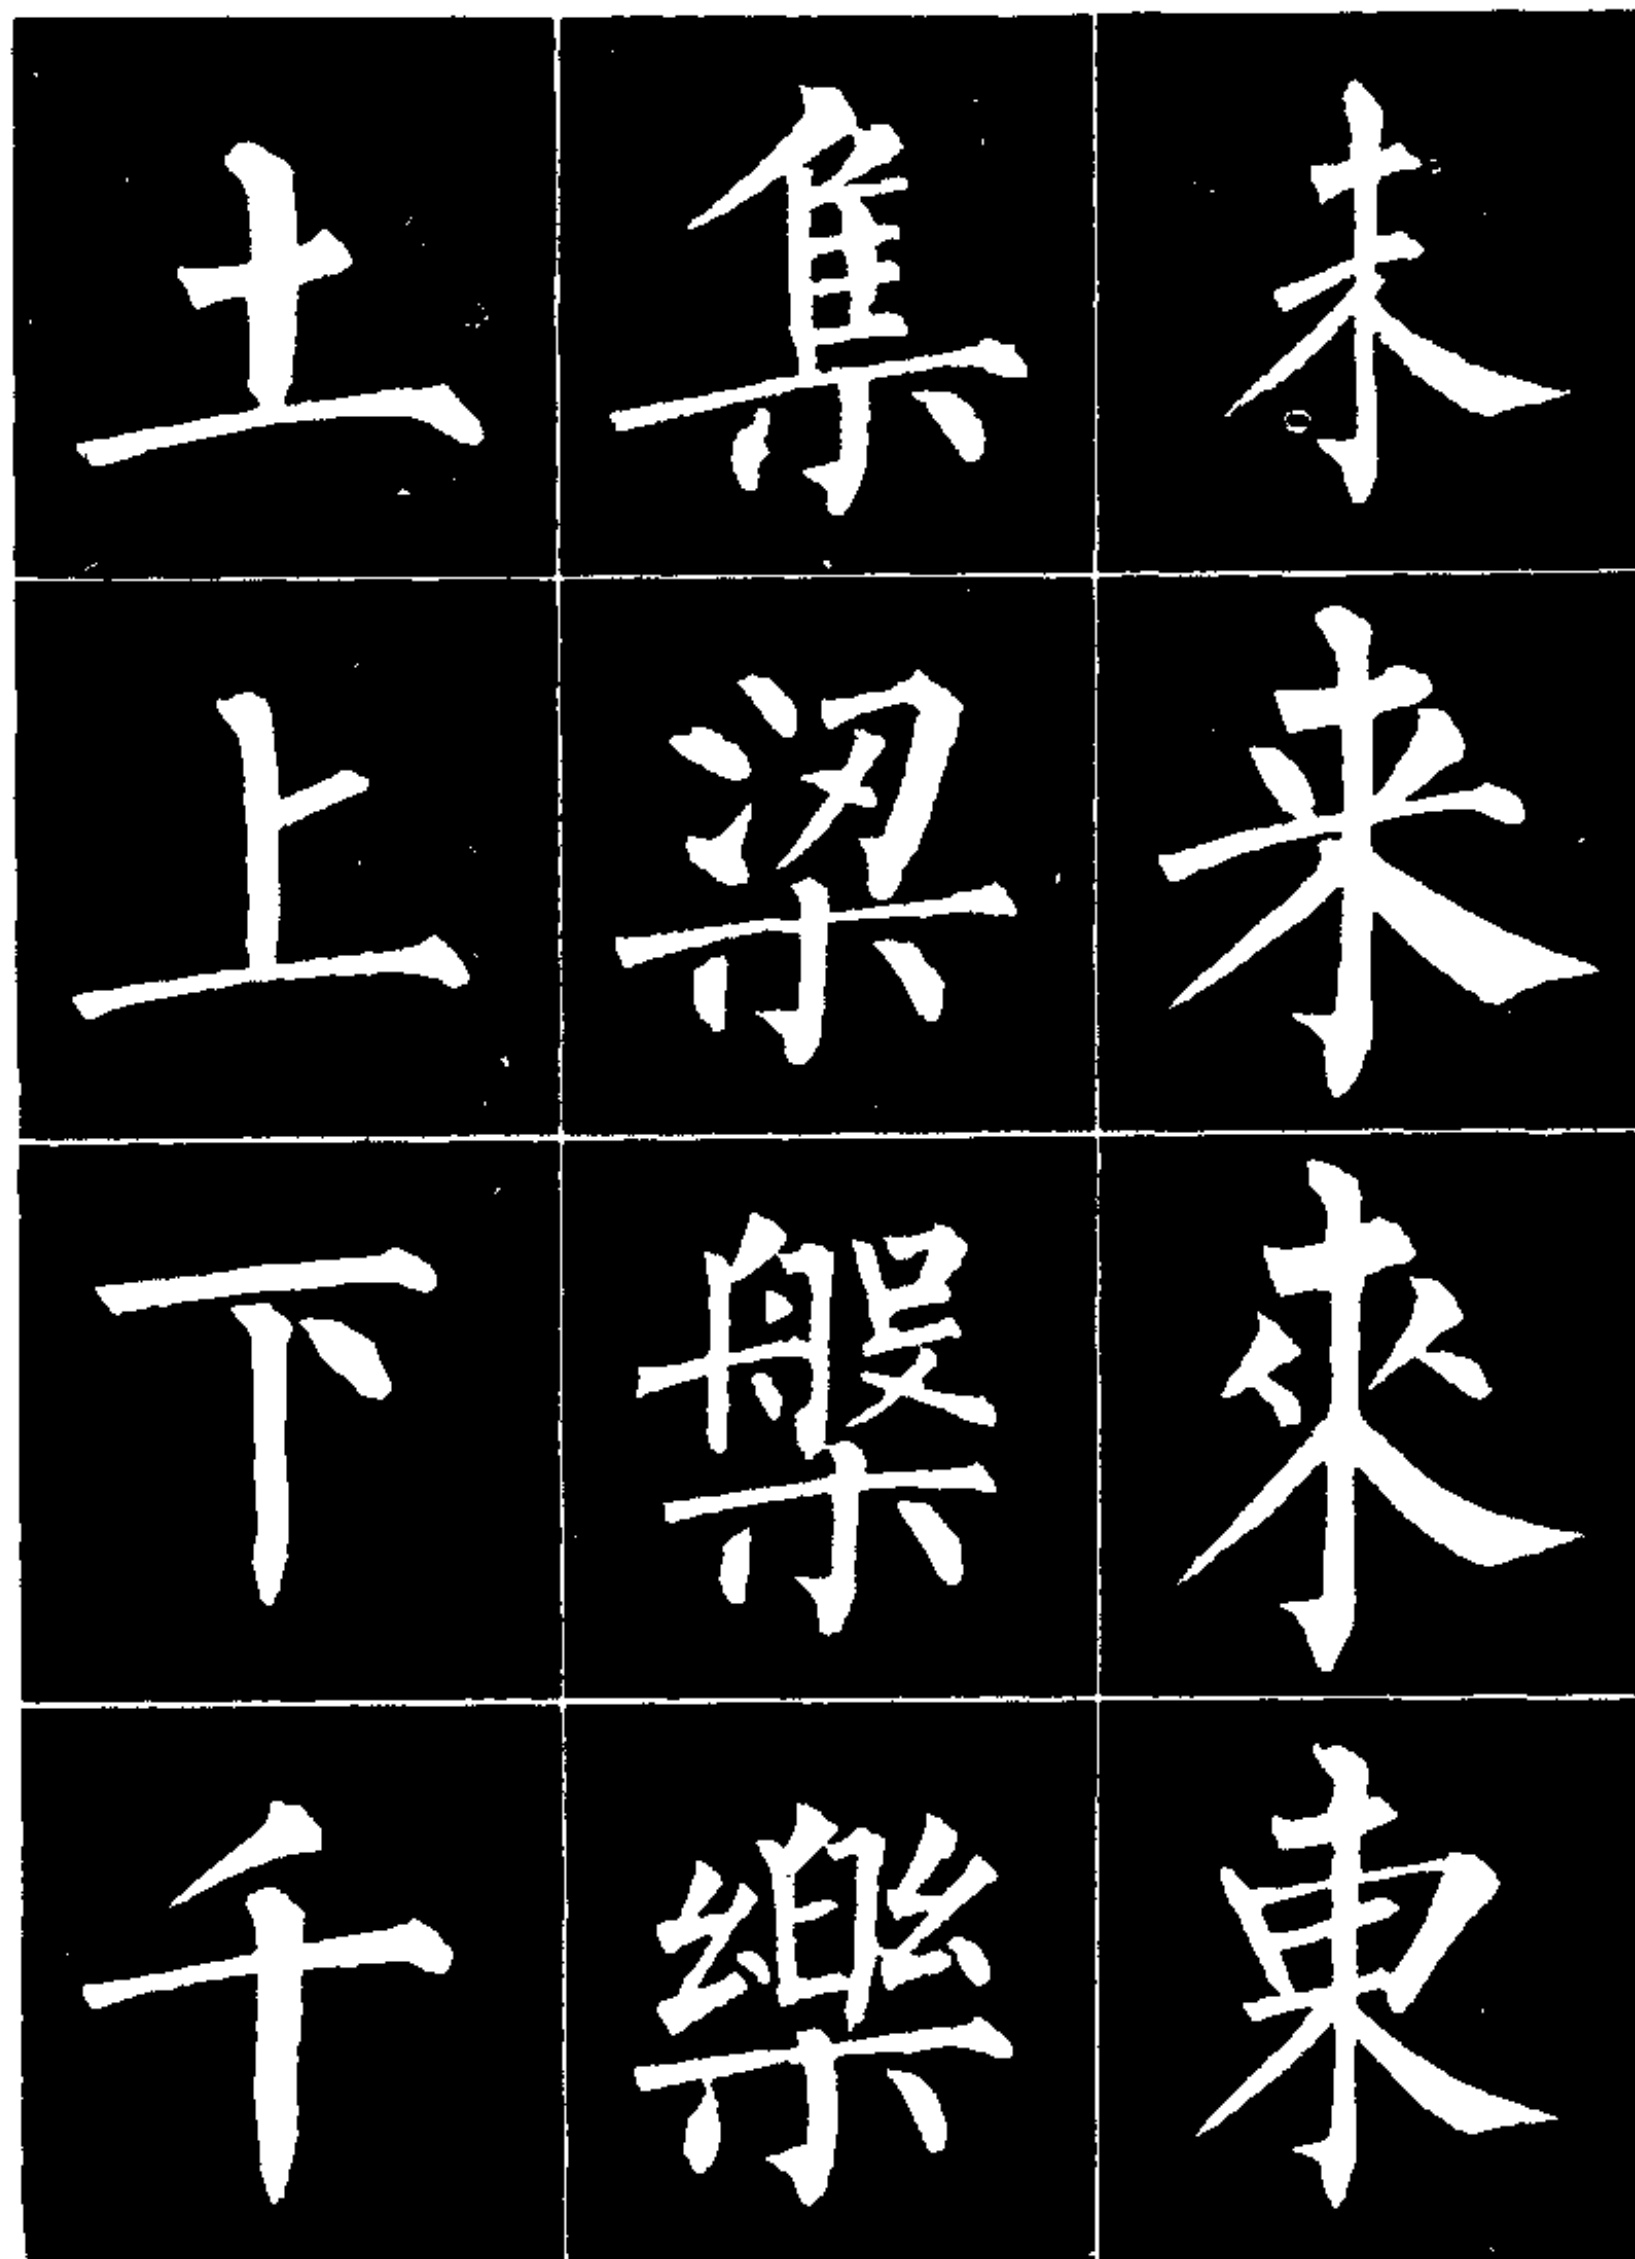 未来來東
集梁槃樂
土上下千